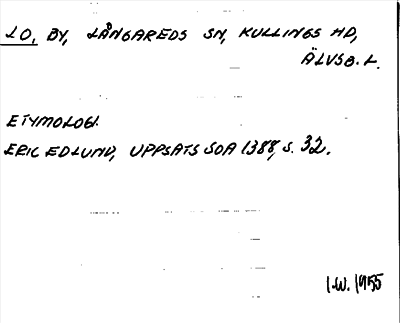 LO, BY, LÅNGAREDS SN, KULLINGS HD,
ÄLVSB. L.
ETYMOLOGI.
ERIC EDLUND, UPPSATS SOA 1388, S. 32.
I.W. 1955